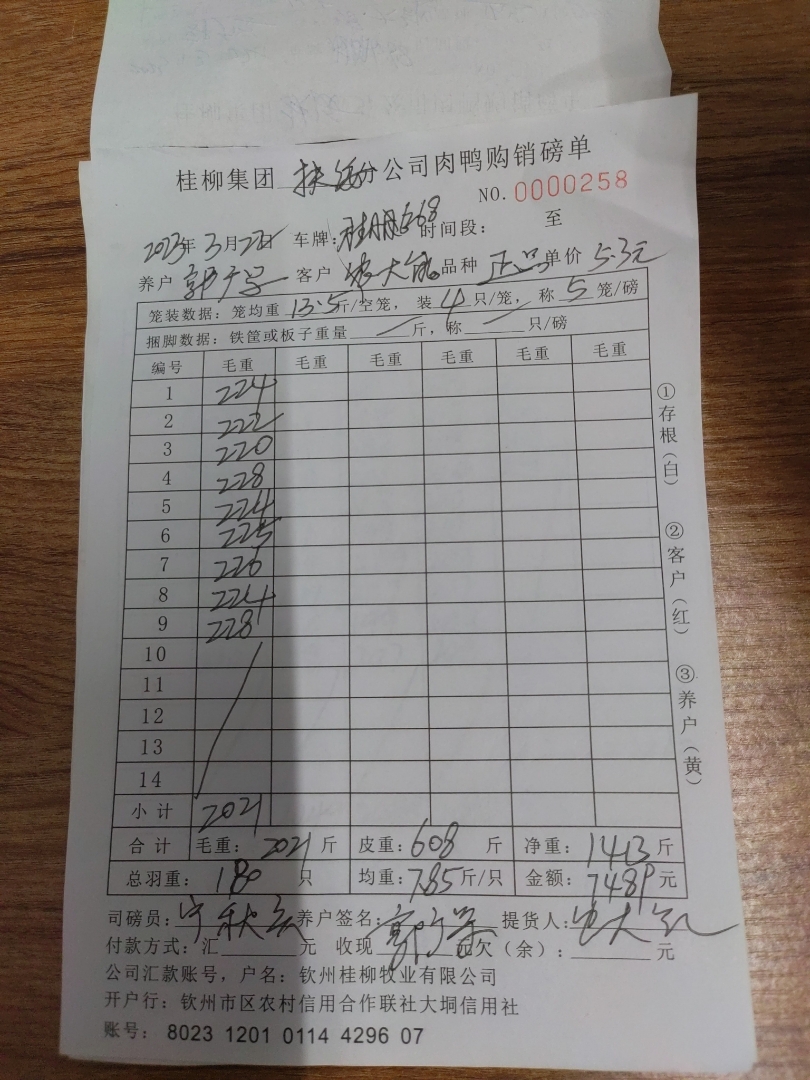 桂柳集团 扶绥分公司肉鸭购销磅单
NO. 0000258
2023年3月22日 车牌: 668 时间段: 至
养户 客户 农大 品种 正品 单价 5.3元
笼装数据: 笼均重 13.5斤/空笼, 装 4 只/笼, 称 5 笼/磅
捆脚数据: 铁筐或板子重量 斤, 称 只/磅
编号 毛重 毛重 毛重 毛重 毛重 毛重
1 224
2 222
3 220
4 228
5 224
6 225
7 226
8 224
9 228
10
11
12
13
14
小计 2021
合计 毛重: 2021 斤 皮重: 608 斤 净重: 1413 斤
总羽重: 180 只 均重: 7.85斤/只 金额: 7489 元
司磅员: 宁秋 养户签名: 提货人:
付款方式: 汇 元 收现 元欠(余): 元
公司汇款账号, 户名: 钦州桂柳牧业有限公司
开户行: 钦州市区农村信用合作联社大垌信用社
账号: 8023 1201 0114 4296 07
①存根(白)
②客户(红)
③养户(黄)